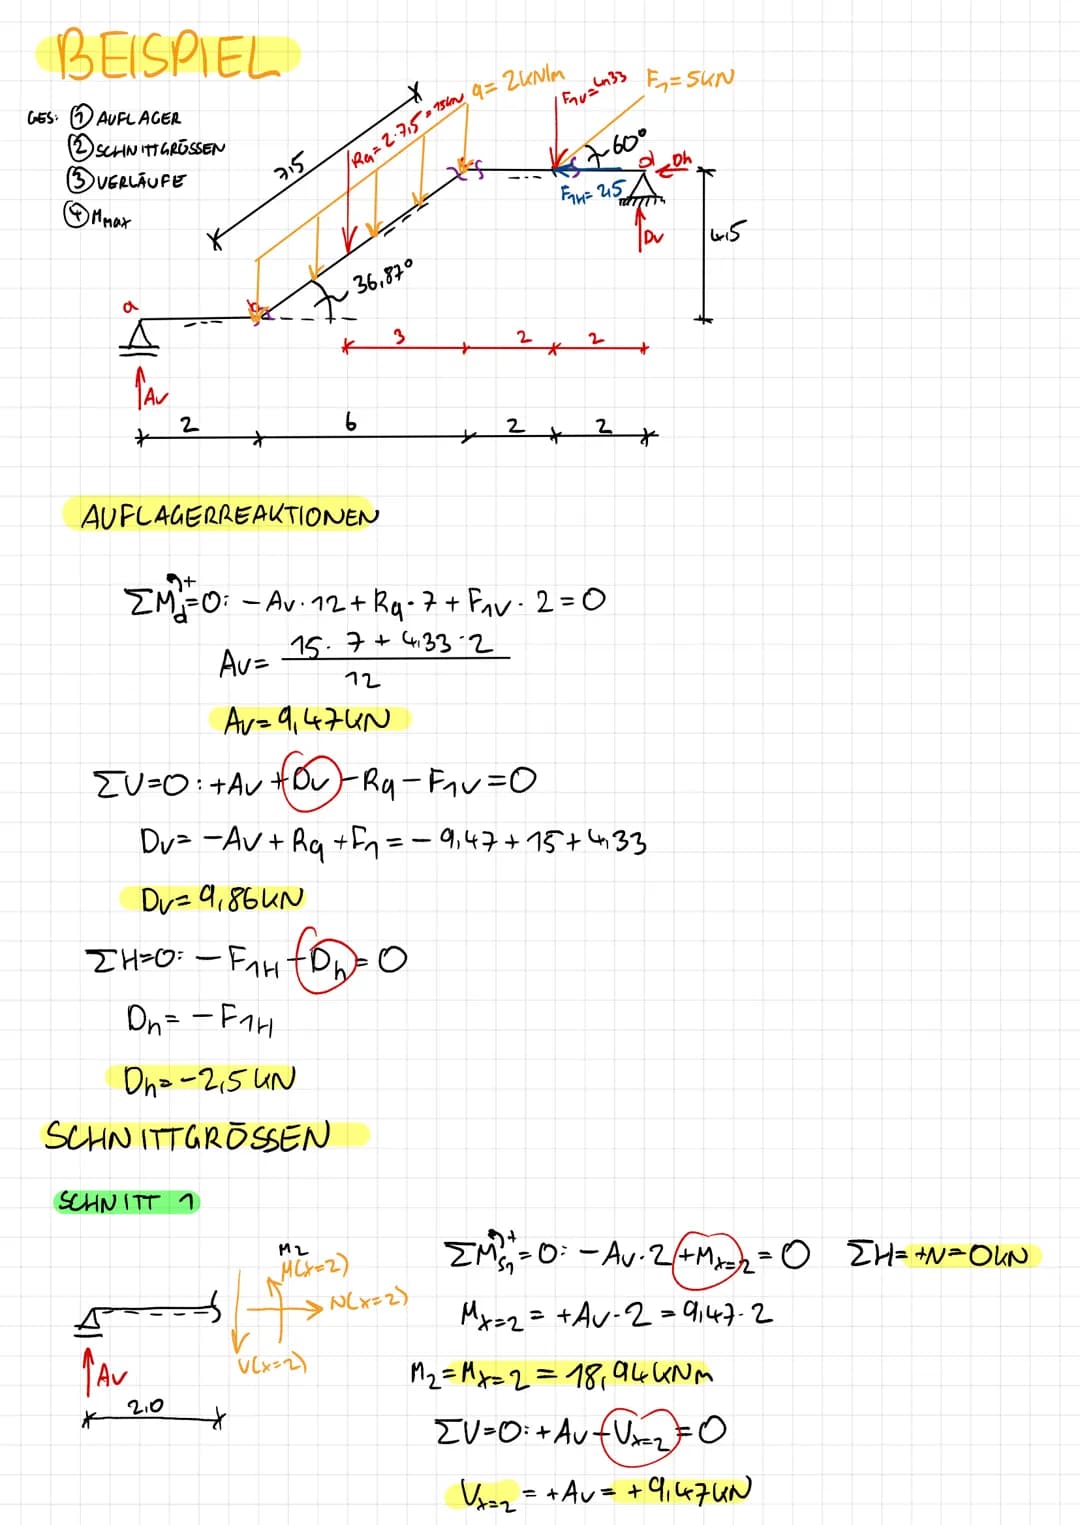 BEISPIEL
GES: ① AUFLAGER
② SCHNITTGRÖSSEN
③ VERLÄUFE
④ Mmax
7,5
Rq = 2·7,5 = 15kN
q = 2kN/m
F1V = 4,33
F1 = 5kN
60°
F1H = 2,5
d
Dh
Dv
4,5
36,87°
a
b
Av
3 2 2
2 6 2 2
AUFLAGERREAKTIONEN
ΣMd = 0: - Av · 12 + Rq · 7 + F1V · 2 = 0
Av = (15 · 7 + 4,33 · 2) / 12
Av = 9,47kN
ΣV=0: +Av + Dv - Rq - F1V = 0
Dv = -Av + Rq + F1 = - 9,47 + 15 + 4,33
Dv = 9,86kN
ΣH=0: - F1H - Dh = 0
Dh = - F1H
Dh = -2,5 kN
SCHNITTGRÖSSEN
SCHNITT 1
M2
M(x=2)
N(x=2)
V(x=2)
Av
2,0
ΣMS1 = 0: - Av · 2 + Mx=2 = 0 ΣH = +N = 0kN
Mx=2 = +Av · 2 = 9,47 · 2
M2 = Mx=2 = 18,94kNm
ΣV=0: + Av - Vx=2 = 0
Vx=2 = +Av = +9,47kN